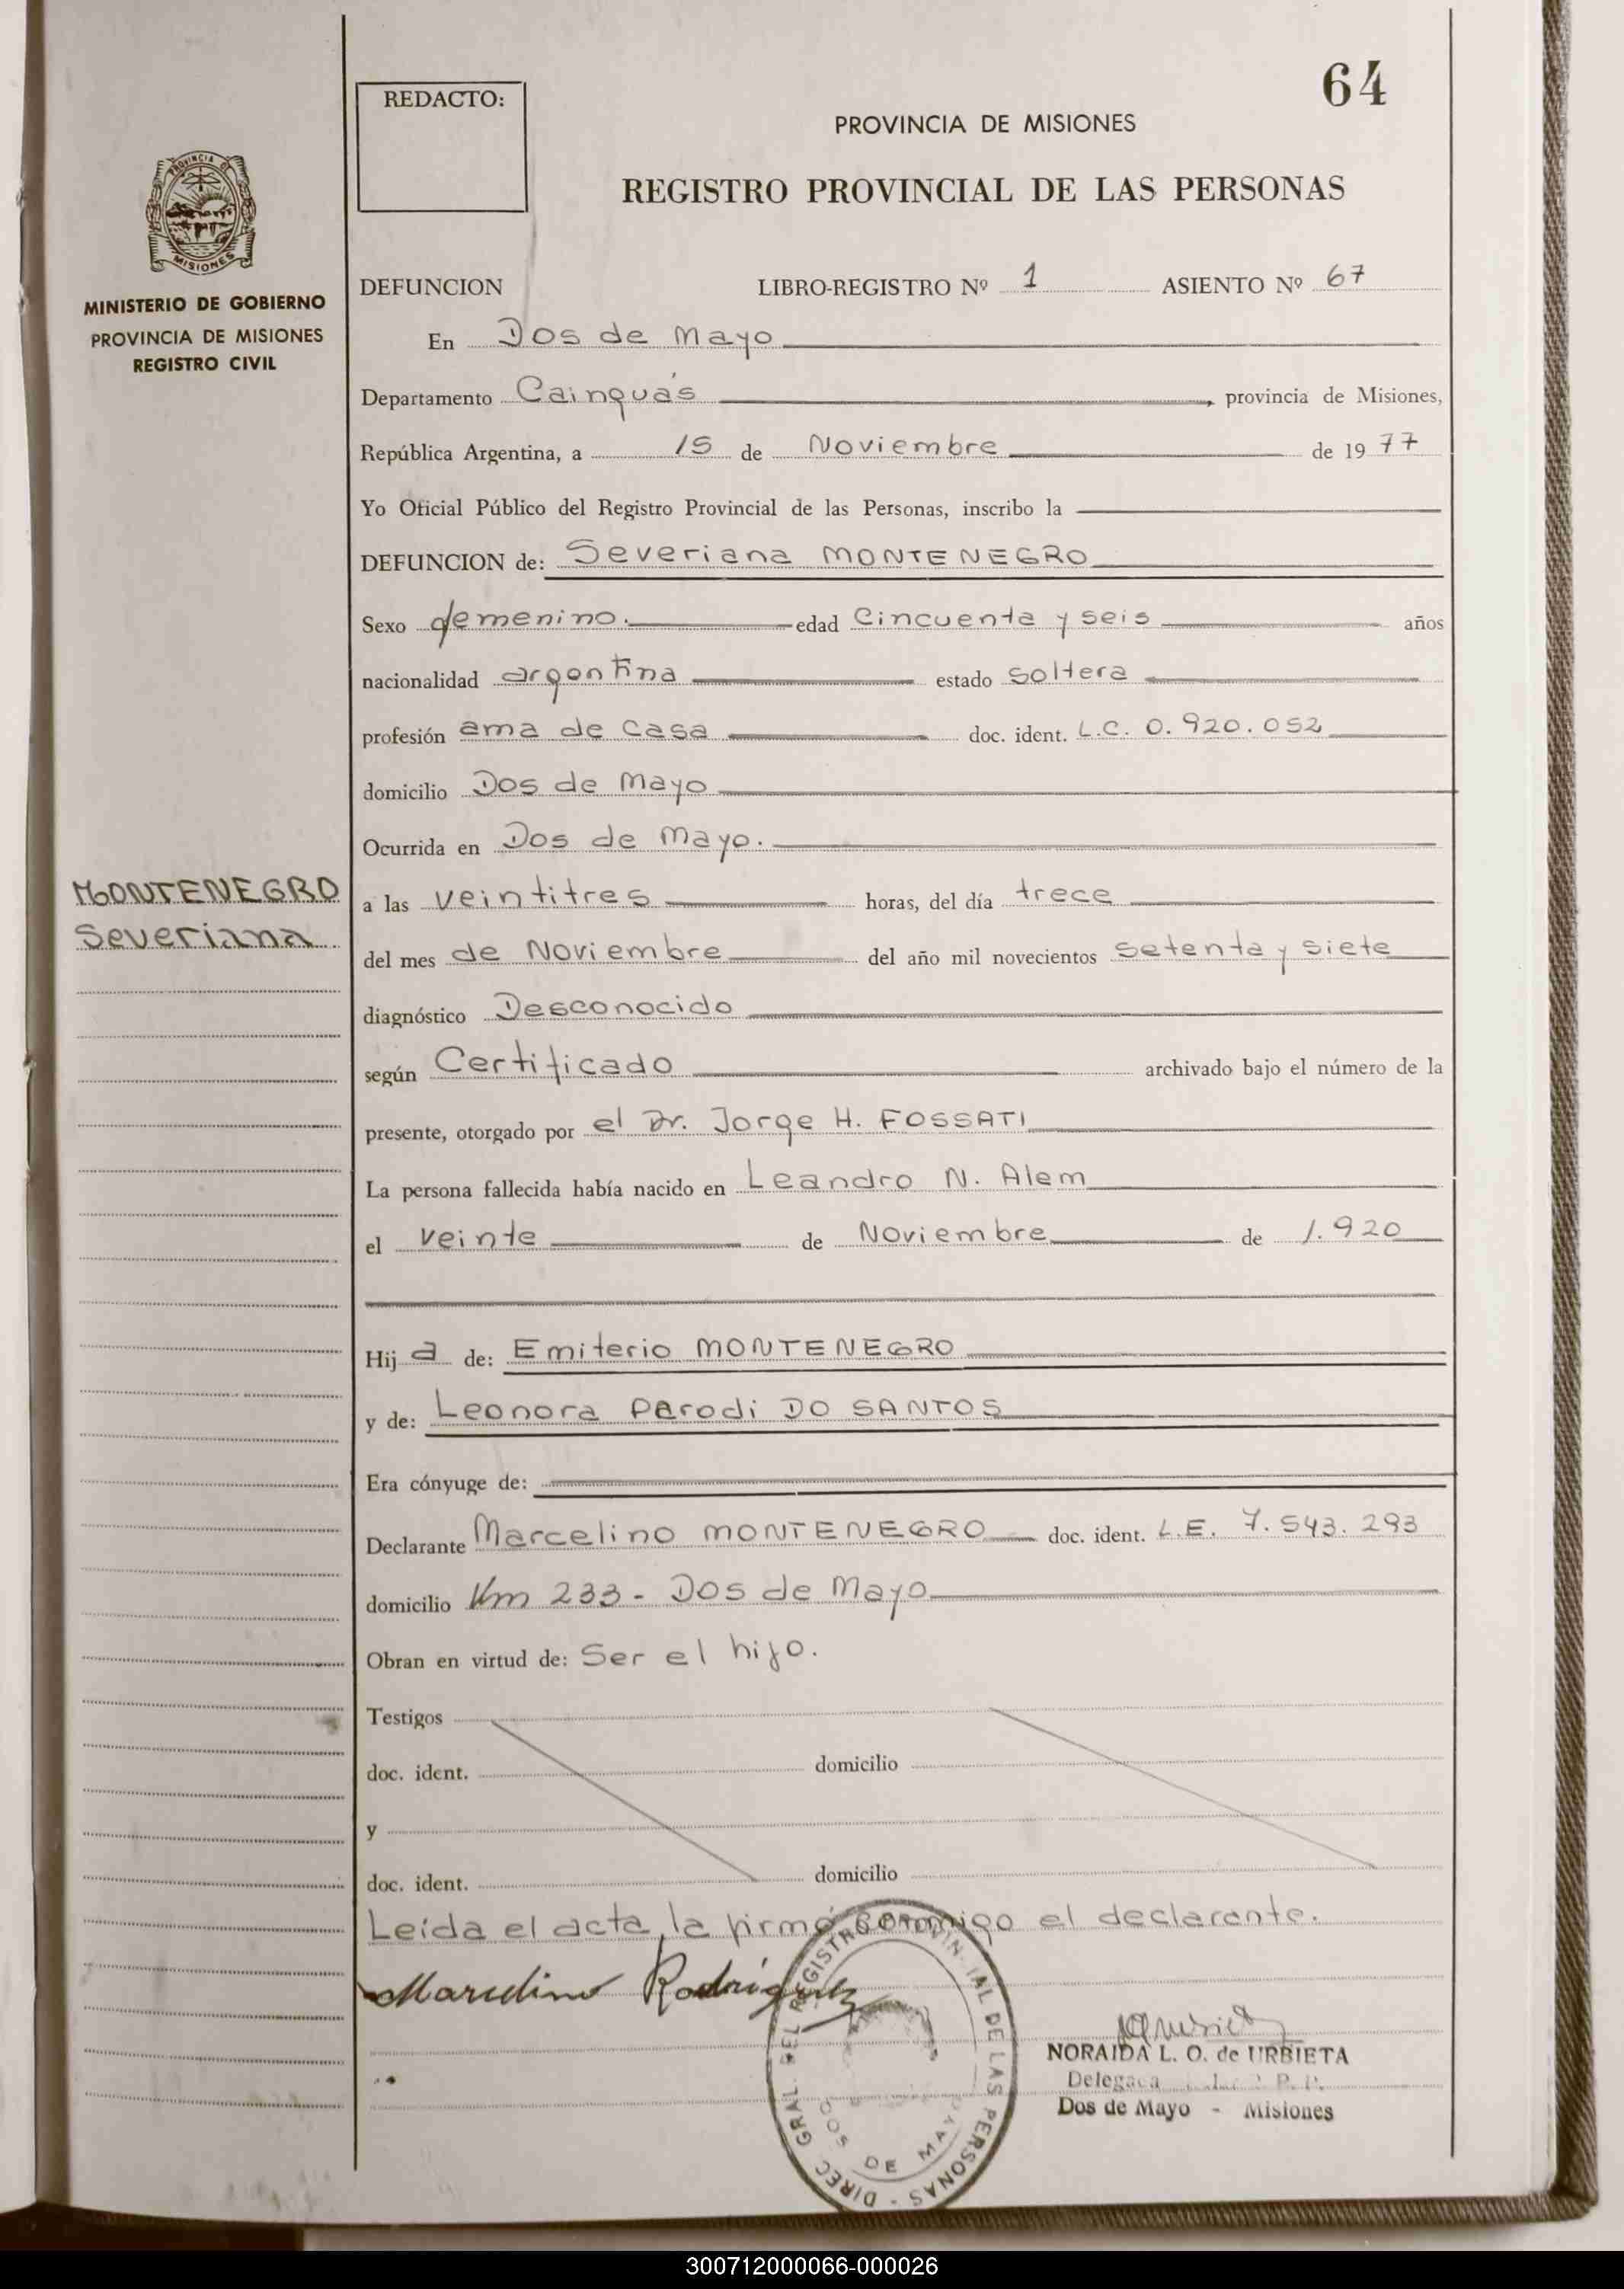 64
REDACTO:
PROVINCIA DE MISIONES
REGISTRO PROVINCIAL DE LAS PERSONAS
PROVINCIA DE
MISIONES
MINISTERIO DE GOBIERNO
PROVINCIA DE MISIONES
REGISTRO CIVIL
DEFUNCION LIBRO-REGISTRO Nº 1 ASIENTO Nº 67
En Dos de Mayo
Departamento Cainguás, provincia de Misiones,
República Argentina, a 15 de Noviembre de 1977
Yo Oficial Público del Registro Provincial de las Personas, inscribo la
DEFUNCION de: Severiana MONTENEGRO
Sexo femenino. edad Cincuenta y seis años
nacionalidad argentina estado soltera
profesión ama de casa doc. ident. L.C. 0.920.052
domicilio Dos de Mayo
Ocurrida en Dos de Mayo.
MONTENEGRO
Severiana
a las veintitres horas, del día trece
del mes de Noviembre del año mil novecientos setenta y siete
diagnóstico Desconocido
según Certificado archivado bajo el número de la
presente, otorgado por el Dr. Jorge H. FOSSATI
La persona fallecida había nacido en Leandro N. Alem
el veinte de Noviembre de 1.920
Hij a de: Emiterio MONTENEGRO
y de: Leonora Parodi DO SANTOS
Era cónyuge de:
Declarante Marcelino MONTENEGRO doc. ident. L.E. 7.543.293
domicilio Km 233 - Dos de Mayo
Obran en virtud de: Ser el hijo.
Testigos
doc. ident. domicilio
y
doc. ident. domicilio
Leída el acta, la firmó conmigo el declarante.
Marcelino Rodríguez
DIREC. GRAL. DEL REGISTRO PROVINCIAL DE LAS PERSONAS -
DOS DE MAYO
NORAIDA L. O. de URBIETA
Delegada R. P. P.
Dos de Mayo - Misiones
300712000066-000026